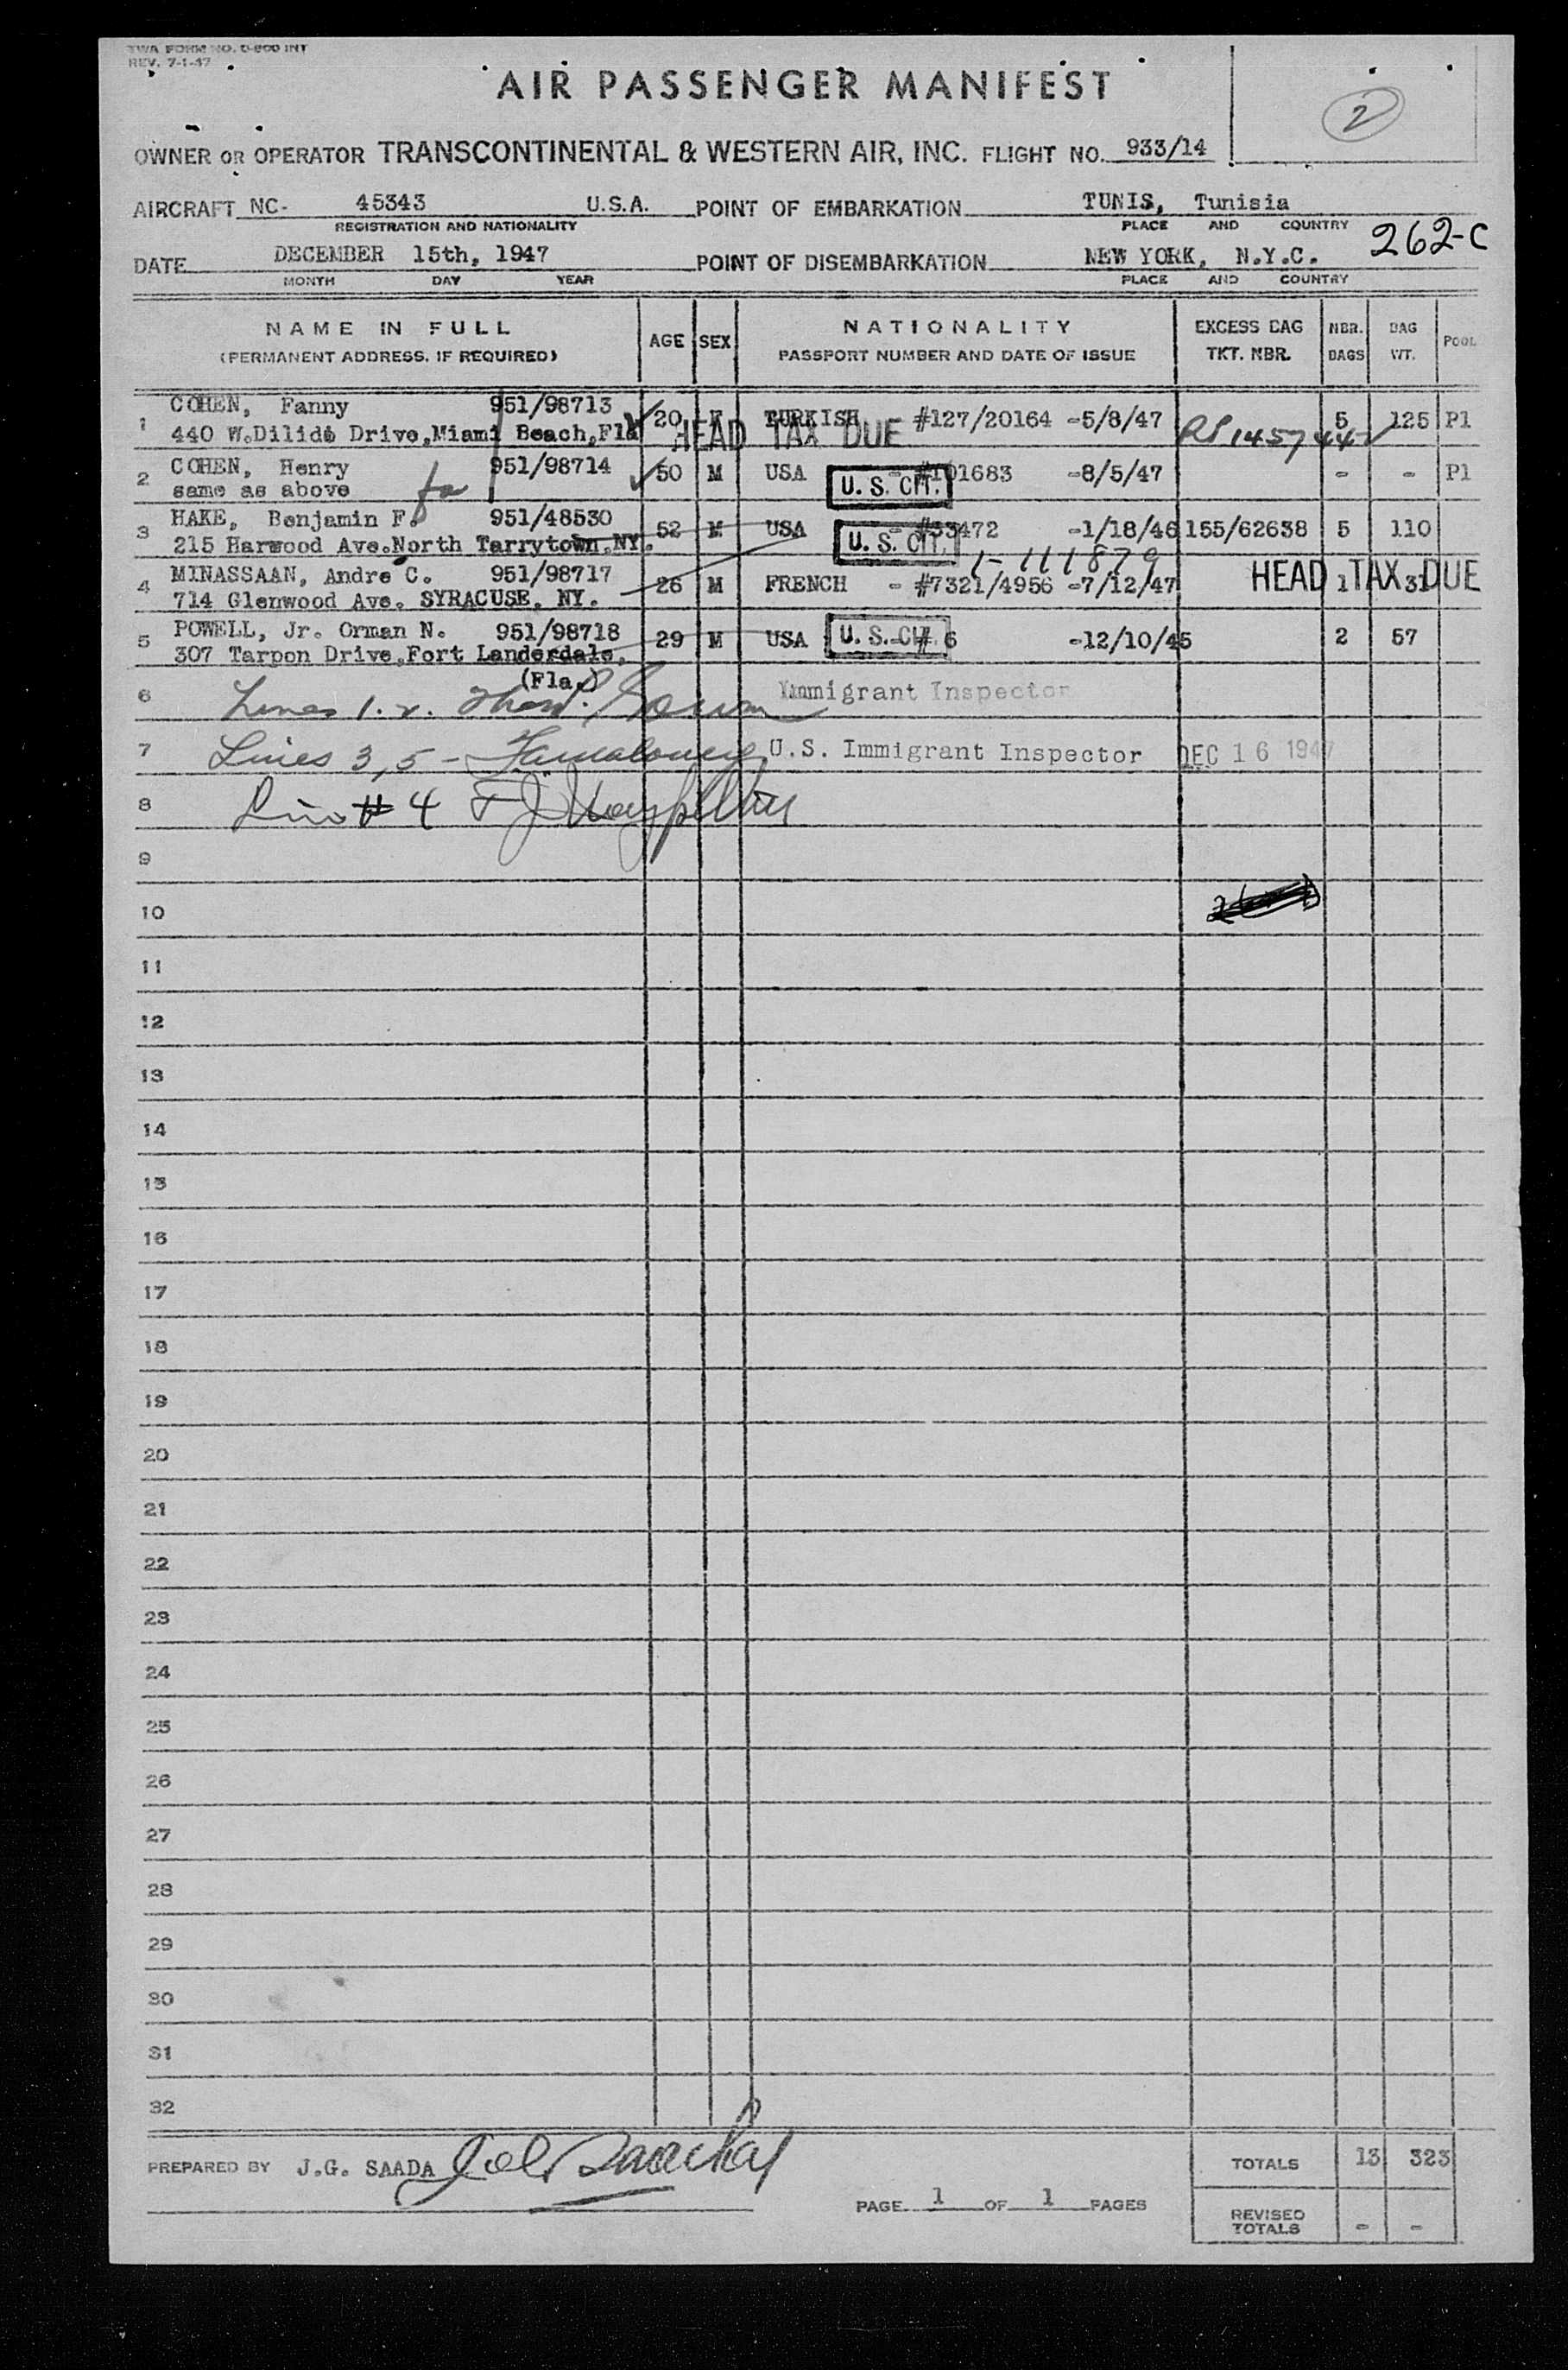 TWA FORM NO. 0-800 INT
REV. 7-1-47
AIR PASSENGER MANIFEST
2
OWNER OR OPERATOR TRANSCONTINENTAL & WESTERN AIR, INC. FLIGHT NO. 933/14
AIRCRAFT NC- 45343 U.S.A. POINT OF EMBARKATION TUNIS, Tunisia
REGISTRATION AND NATIONALITY PLACE AND COUNTRY
262-C
DATE DECEMBER 15th, 1947 POINT OF DISEMBARKATION NEW YORK, N.Y.C.
MONTH DAY YEAR PLACE AND COUNTRY
NAME IN FULL AGE SEX NATIONALITY EXCESS BAG NBR. BAG POOL
(PERMANENT ADDRESS, IF REQUIRED) PASSPORT NUMBER AND DATE OF ISSUE TKT. NBR. BAGS WT.
1 COHEN, Fanny 951/98713 20 F TURKISH #127/20164 -5/8/47 5 125 P1
440 W.Dilido Drive,Miami Beach,Fla HEAD TAX DUE
2 COHEN, Henry 951/98714 50 M USA - #101683 -8/5/47 - - P1
same as above U. S. CIT.
3 HAKE, Benjamin F. 951/48530 52 M USA - #33472 -1/18/46 155/62638 5 110
215 Harwood Ave.North Tarrytown.NY. U. S. CIT.
1-111879
4 MINASSAAN, Andre C. 951/98717 26 M FRENCH - #7321/4956 -7/12/47 HEAD TAX DUE 1 31
714 Glenwood Ave. SYRACUSE, NY.
5 POWELL, Jr. Orman N. 951/98718 29 M USA U. S. CIT. -# 6 -12/10/45 2 57
307 Tarpon Drive,Fort Landerdale,
(Fla.)
6 Lines 1. 2. Immigrant Inspector
7 Lines 3, 5 - U.S. Immigrant Inspector DEC 16 1947
8 Line # 4
9
10
11
12
13
14
15
16
17
18
19
20
21
22
23
24
25
26
27
28
29
30
31
32
PREPARED BY J.G. SAADA
TOTALS 13 323
PAGE 1 OF 1 PAGES
REVISED TOTALS - -